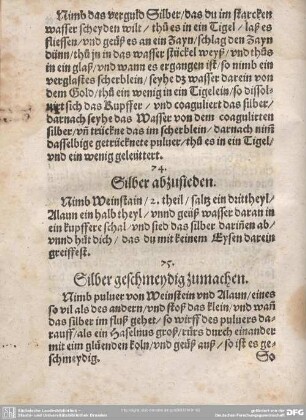 Nimb das verguld Silber/das du im starcken
wasser scheyden wilt/thů es in ein Tigel/laß es
fliessen/vnd geüß es an ein Zayn/schlag den Zayn
dünn/thů jn in das wasser stückel weyß/vnd thůs
in ein glaß/vnd wann es ergangen ist/so nimb ein
verglastes scherblein/seyhe dz wasser darein von
dem Gold/thů ein wenig in ein Tigelein/so dissol-
uirt sich das Kupffer/vnd coaguliert das silber/
darnach seyhe das Wasser von dem coagulirten
silber/vñ trückne das im scherblein/darnach nim̃
dasselbige getrücknete puluer/thů es in ein Tigel/
vnd ein wenig geleüttert.
74.
Silber abzusieden.
Nimb Weinstain/2. theil/saltz ein dzittheyl/
Alaun ein halb theyl/vnnd geüß wasser daran in
ein kupffere schal/vnd sied das silber dariñen ab/
vnnd hüt dich/das du mit keinem Eysen darein
greiffest.
75.
Silber geschmeydig zumachen.
Nimb puluer von Weinstein vnd Alaun/eines
so vil als des andern/vnd stoß das klein/vnd wañ
das silber im fluß gehet/so wirff des puluers dar-
auff/als ein Haselnus groß/rürs durch einander
mit eim glüenden koln/vnd geüß auß/so ist es ge-
schmeydig.
So
Sächsische Landesbibliothek -
Staats- und Universitätsbibliothek Dresden
gefördert von der
Deutschen Forschungsgemeinschaft
DFG